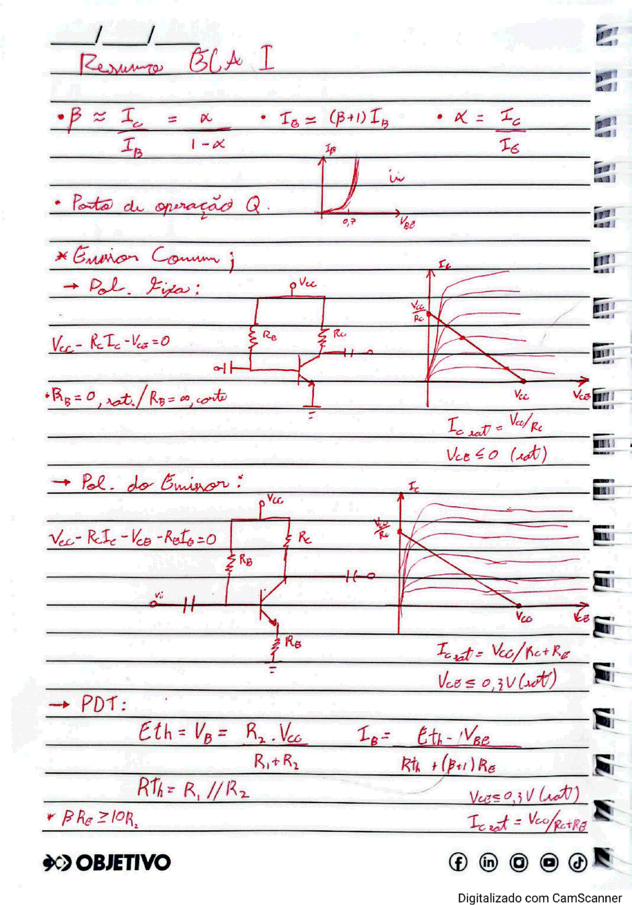 ___/___/___
Resumo ECA I
• β ≈ I_C / I_B = α / 1-α • I_E ≃ (β+1) I_B • α = I_C / I_E
I_B
• Ponto de operação Q.
0,7 V_BE
* Emissor Comum;
I_C
→ Pol. Fixa:
Vcc
R_B R_C Vcc/Rc
Vcc - RcIc - V_CE = 0
Vcc V_CE
• R_B = 0, sat. / R_B = ∞, corte
I_C sat = Vcc/Rc
V_CE ≤ 0 (sat)
→ Pol. do Emissor:
I_C
Vcc
Vcc/Rc
Vcc - RcIc - V_CE - R_E I_E = 0
R_B R_C
Vi
Vcc V_CE
R_E
I_C sat = Vcc/Rc+R_E
V_CE ≤ 0,3V (sat)
→ PDT:
Eth = V_B = R_2 . Vcc / R_1 + R_2 I_B = Eth - V_BE / Rth + (β+1) R_E
RTh = R_1 // R_2
V_CE ≤ 0,3V (sat)
* βR_E ≥ 10R_2
I_C sat = Vcc/Rc+R_E
OBJETIVO
Digitalizado com CamScanner